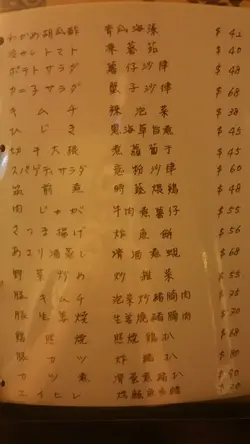 わかめ胡瓜酢 青瓜海藻 $42
冷やしトマト 凍蕃茄 $40
ポテトサラダ 薯仔沙律 $48
カニ子サラダ 蟹子沙律 $68
キムチ 辣泡菜 $38
ひじき 黑海草旨煮 $45
切干大根 煮蘿蔔干 $45
スパゲティサラダ 意粉沙律 $60
筑前煮 時菜煨鶏 $48
肉じゃが 牛肉煮薯仔 $55
さつま揚げ 炸魚餅 $56
あさり酒蒸し 清酒煮蜆 $68
野菜炒め 炒雑菜 $55
豚キムチ 泡菜炒豬腩肉 $75
豚生姜焼 生姜焼豬腩肉 $70
鶏照焼 照焼鶏扒
豚カツ 炸豬扒
カツ煮 滑蛋煮豬扒
エイヒレ